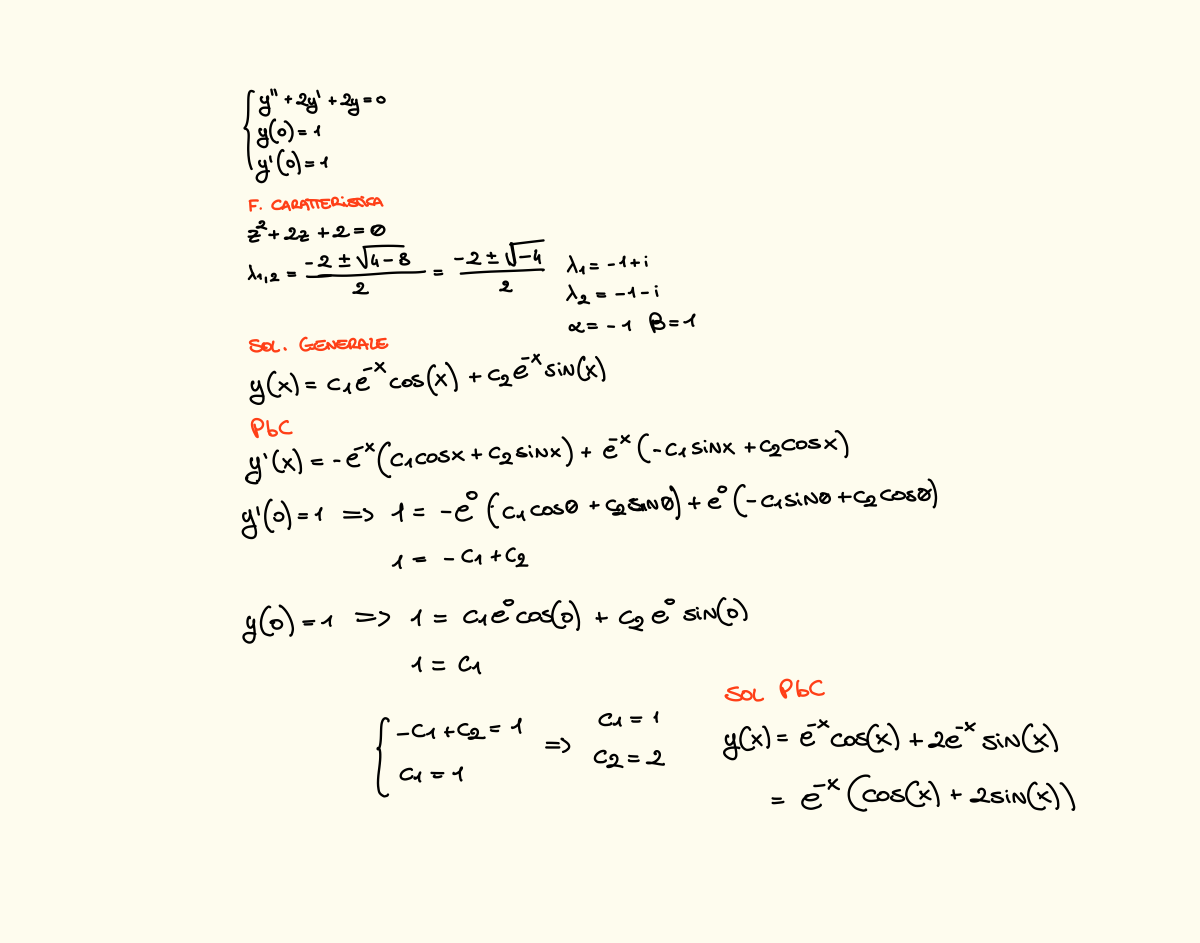 y'' + 2y' + 2y = 0
y(0) = 1
y'(0) = 1
F. CARATTERISTICA
z² + 2z + 2 = 0
λ₁,₂ = (-2 ± √(4-8))/2 = (-2 ± √-4)/2
λ₁ = -1+i
λ₂ = -1-i
α = -1 β = 1
SOL. GENERALE
y(x) = c₁e⁻ˣcos(x) + c₂e⁻ˣsin(x)
PbC
y'(x) = -e⁻ˣ(c₁cosx + c₂sinx) + e⁻ˣ(-c₁sinx + c₂cosx)
y'(0) = 1 => 1 = -e⁰(c₁cos0 + c₂sin0) + e⁰(-c₁sin0 + c₂cos0)
1 = -c₁ + c₂
y(0) = 1 => 1 = c₁e⁰cos(0) + c₂e⁰sin(0)
1 = c₁
{ -c₁ + c₂ = 1
c₁ = 1
=> c₁ = 1
c₂ = 2
SOL PbC
y(x) = e⁻ˣcos(x) + 2e⁻ˣsin(x)
= e⁻ˣ(cos(x) + 2sin(x))